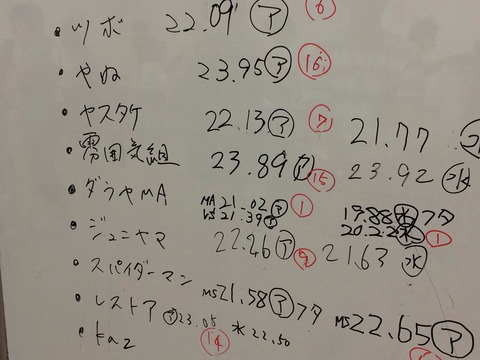 ・ツボ 22.09 ㋐ ⑥
・やぬ 23.95 ㋐ ⑯
・ヤスタケ 22.13 ㋐ ⑦ 21.77 ㊌
・雰囲気組 23.89 ㋐ ⑮ 23.92 ㊌
・ダラヤMA MA 21.02 ㋐ ① 19.88 ㊌ フタ
VS 21.39 ㋐ 20.22 ㊌ ①
・ジュニヤマ 22.26 ㋐ ⑨ 21.63 ㊌
・スパイダーマン MS 21.58 ㋐ フタ MS 22.65 ㋐
・レストア ㋐ 23.05 * 22.50
・kaz ⑭